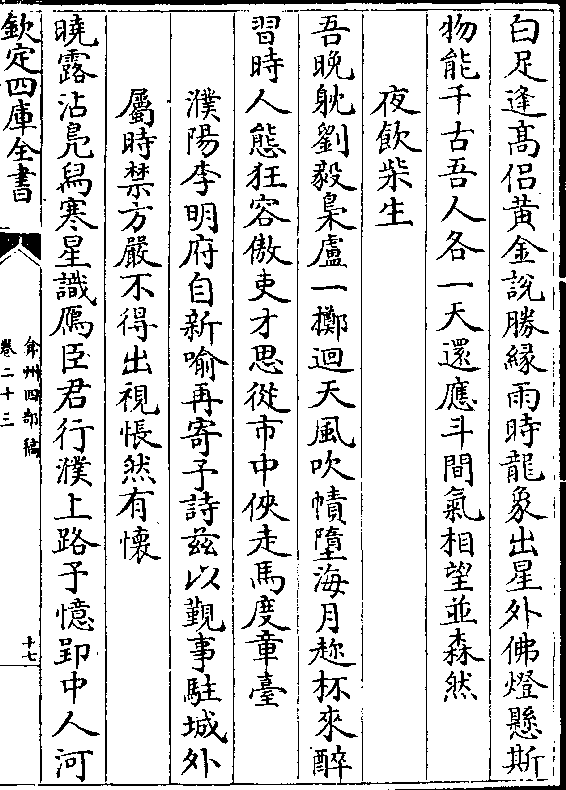 白足逢髙侣黄金說勝縁雨時龍象出星外佛燈懸斯
物能千古吾人各一天還應斗間氣相望並森然
夜飲柴生
吾晚躭劉毅梟盧一擲迴天風吹幘墮海月趂杯來醉
習時人態狂容傲吏才思從市中俠走馬度章臺
濮陽李明府自新喻再寄予詩兹以覲事駐城外
屬時禁方嚴不得出視悵然有懷
曉露沾鳬舄寒星識鴈臣君行濮上路予憶郢中人河
欽定四庫全書
弇州四部稿
卷二十三
十七